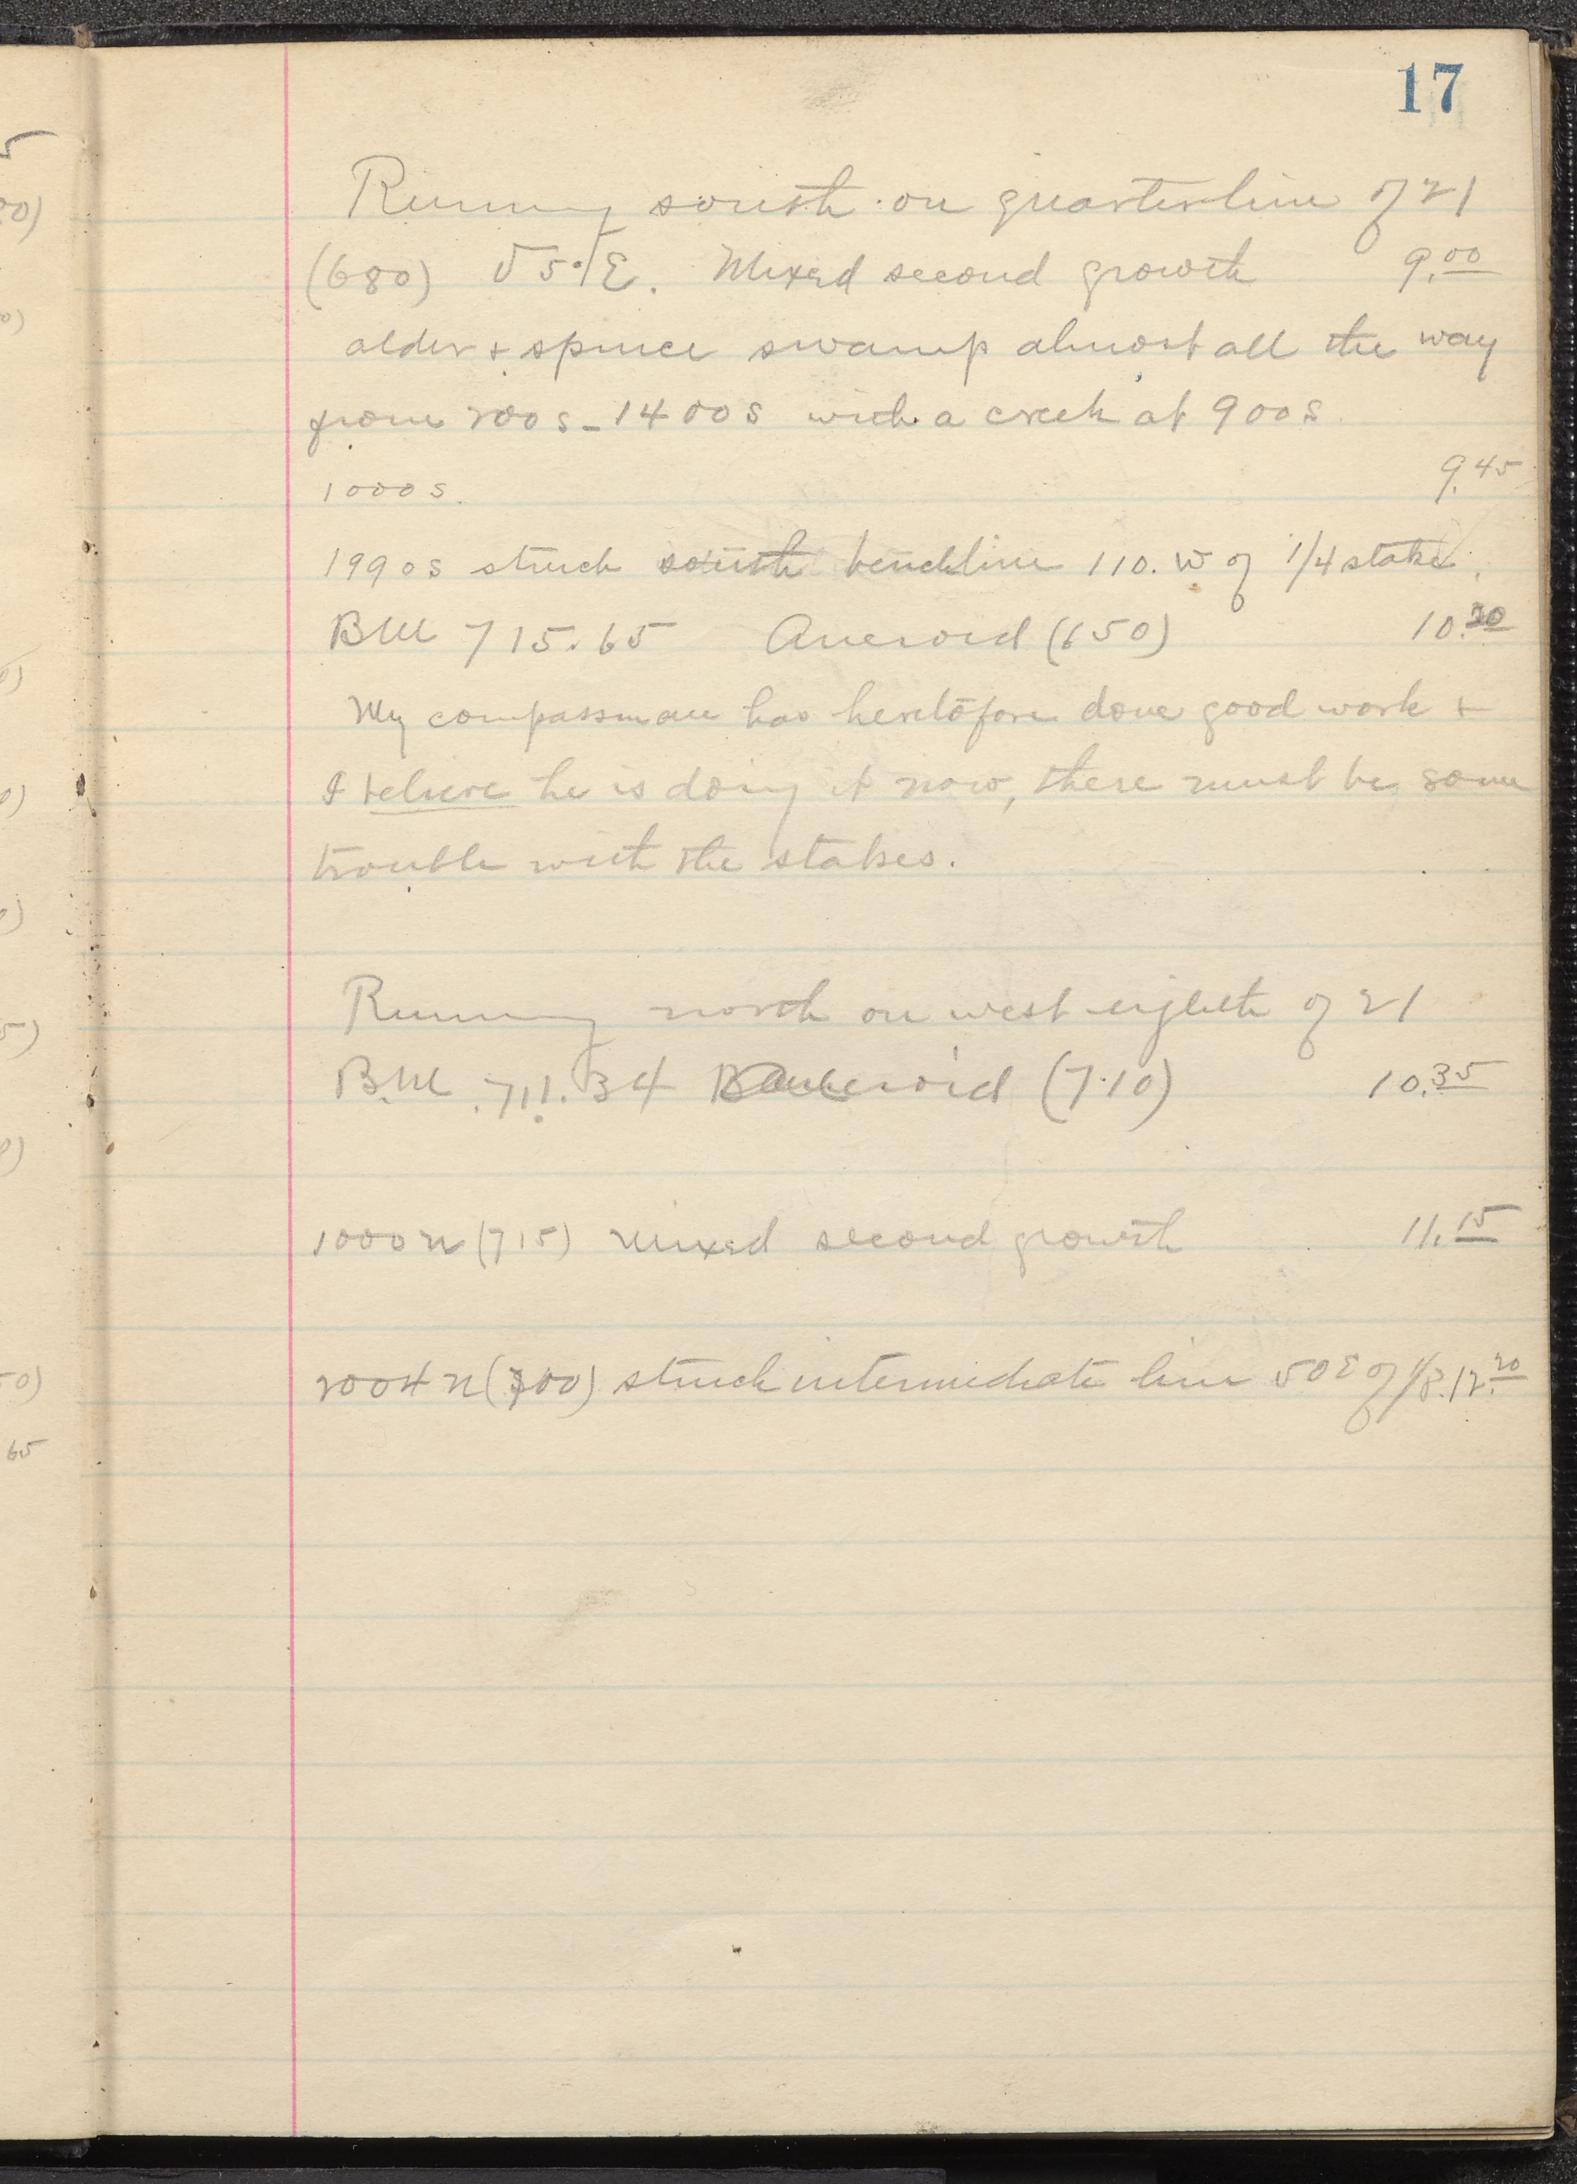 17
Running south on quarterline of 21
(680) V 5°/E. Mixed second growth 9.00
alder + spruce swamp almost all the way
from 200 s - 1400 s with a creek at 900 s
1000 s. 9.45
1990 s struck south benchline 110. W of 1/4 stake.
BM 715.65 Aneroid (650) 10.20
My compassman has heretofore done good work +
I believe he is doing it now, there must be some
trouble with the stakes.
Running north on west eighth of 21
B.M. 711.34 Aneroid (710) 10.35
1000 n (715) mixed second growth 11.15
2004 n (700) struck intermediate line 50 E of 1/8. 12.20
0)
5)
65